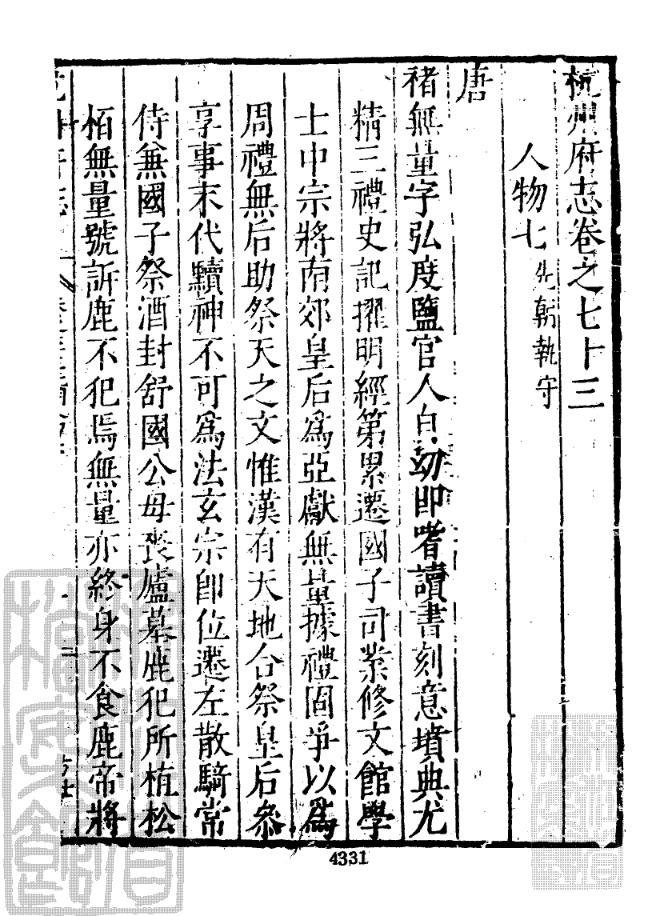 杭州府志卷之七十三
人物七先朝執守
唐
褚無量字弘度鹽官人自幼即嗜讀書刻意墳典尤
精三禮史記擢明經第累遷國子司業修文館學
士中宗將南郊皇后為亞獻無量據禮固爭以為
周禮無后助祭天之文惟漢有天地合祭皇后參
享事末代黷神不可為法玄宗即位遷左散騎常
侍兼國子祭酒封舒國公母喪廬墓鹿犯所植松
栢無量號訴鹿不犯焉無量亦終身不食鹿帝將
4331